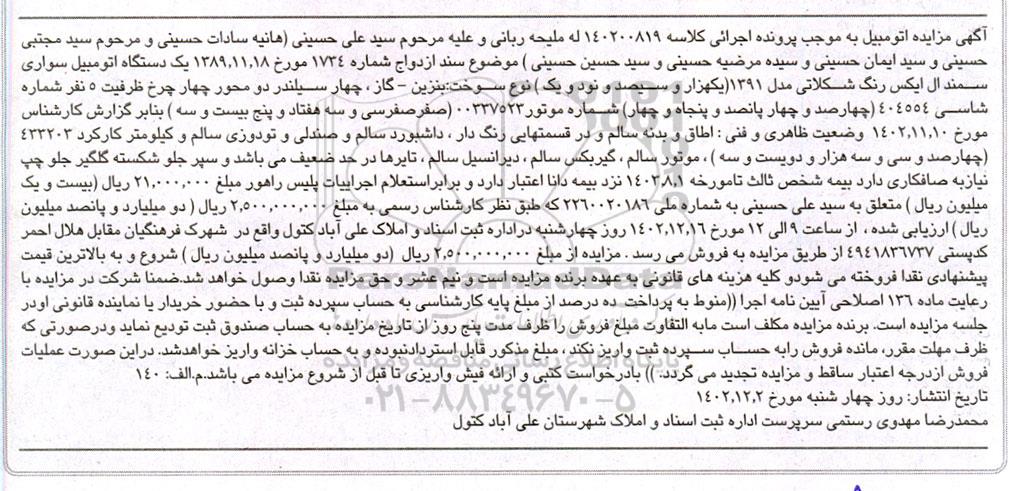 آگهی مزایده اتومبیل به موجب پرونده اجرائی کلاسه ۱۴۰۲۰۰۸۱۹ له ملیحه ربانی و علیه مرحوم سید علی حسینی (هانیه سادات حسینی و مرحوم سید مجتبی
حسینی و سید ایمان حسینی و سیده مرضیه حسینی و سید حسین حسینی ) موضوع سند ازدواج شماره ۱۷۳۴ مورخ ۱۳۸۹,۱۱,۱۸ یک دستگاه اتومبیل سواری
سمند ال ایکس رنگ شکلاتی مدل ۱۳۹۱(یکهزار و سیصد و نود و یک ) نوع سوخت:بنزین – گاز ، چهار سیلندر دو محور چهار چرخ ظرفیت ۵ نفر شماره
شاسی ۴۰۴۵۵۴ (چهارصد و چهار پانصد و پنجاه و چهار) شماره موتور ۰۰۳۳۷۵۲۳ (صفرصفرسی و سه هفتاد و پنج بیست و سه ) بنابر گزارش کارشناس
مورخ ۱۴۰۲,۱۱,۱۰ وضعیت ظاهری و فنی : اطاق و بدنه سالم و در قسمتهایی رنگ دار ، داشبورد سالم و صندلی و تودوزی سالم و کیلومتر کارکرد ۴۳۳۲۰۳
(چهارصد و سی و سه هزار و دویست و سه ) ، موتور سالم ، گیربکس سالم ، دیرانسیل سالم ، تایرها در حد ضعیف می باشد و سپر جلو شکسته گلگیر جلو چپ
نیازبه صافکاری دارد بیمه شخص ثالث تامورخه ۱۴۰۳,۸,۱ نزد بیمه دانا اعتبار دارد و برابراستعلام اجراییات پلیس راهور مبلغ ۲۱,۰۰۰,۰۰۰ ریال (بیست و یک
میلیون ریال ) متعلق به سید علی حسینی به شماره ملی ۲۲۶۰۰۲۰۱۸۶ که طبق نظر کارشناس رسمی به مبلغ ۲,۵۰۰,۰۰۰,۰۰۰ ریال ( دو میلیارد و پانصد میلیون
ریال ) ارزیابی شده ، از ساعت ۹ الی ۱۲ مورخ ۱۴۰۲,۱۲,۱۶ روز چهارشنبه دراداره ثبت اسناد و املاک علی آباد کتول واقع در شهرک فرهنگیان مقابل هلال احمر
کدپستی ۴۹۴۱۸۳۶۷۳۷ از طریق مزایده به فروش می رسد . مزایده از مبلغ ۲,۵۰۰,۰۰۰,۰۰۰ ریال (دو میلیارد و پانصد میلیون ریال ) شروع و به بالاترین قیمت
پیشنهادی نقدا فروخته می شودو کلیه هزینه های قانونی به عهده برنده مزایده است و نیم عشر و حق مزایده نقدا وصول خواهد شد.ضمنا شرکت در مزایده با
رعایت ماده ۱۳۶ اصلاحی آیین نامه اجرا ((منوط به پرداخت ده درصد از مبلغ پایه کارشناسی به حساب سپرده ثبت و با حضور خریدار یا نماینده قانونی اودر
جلسه مزایده است. برنده مزایده مکلف است مابه التفاوت مبلغ فروش را ظرف مدت پنج روز از تاریخ مزایده به حساب صندوق ثبت تودیع نماید ودرصورتی که
ظرف مهلت مقرر، مانده فروش رابه حساب سپرده ثبت واریز نکند ، مبلغ مذکور قابل استردادنبوده و به حساب خزانه واریز خواهدشد. دراین صورت عملیات
فروش ازدرجه اعتبار ساقط و مزایده تجدید می گردد. )) بادرخواست کتبی و ارائه فیش واریزی تا قبل از شروع مزایده می باشد.م.الف: ۱۴۰
تاریخ انتشار: روز چهار شنبه مورخ ۱۴۰۲,۱۲,۲
محمدرضا مهدوی رستمی سرپرست اداره ثبت اسناد و املاک شهرستان علی آباد کتول
ParsNamadData
پایگاه اطلاع رسانی مناقصه و مزایده
۰۲۱-۸۸۳۴۹۶۷۰-۵